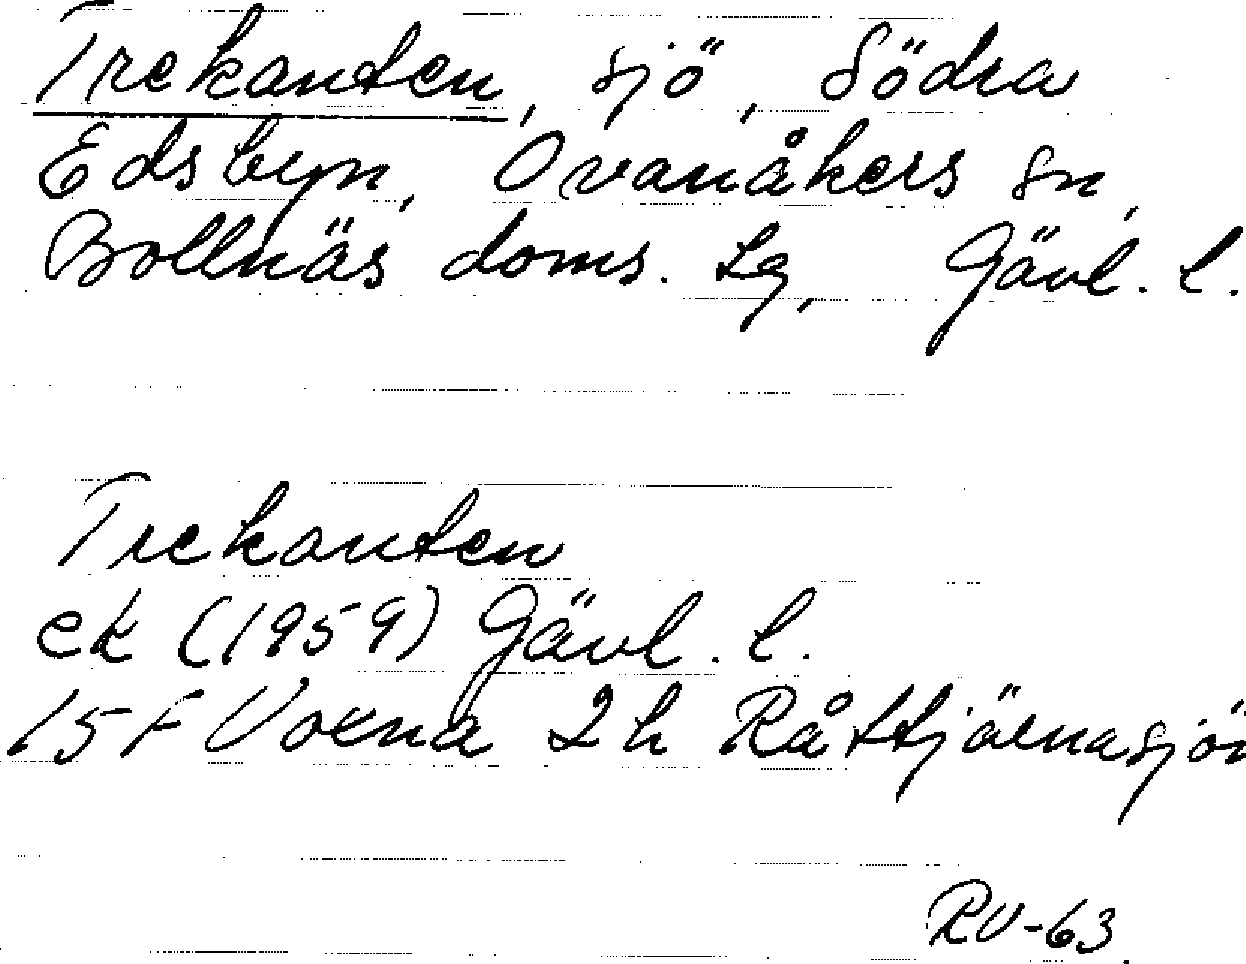 Trekanten, sjö, Södra
Edsbyn, Ovanåkers sn,
Bollnäs doms. lg, Gävl. l.
Trekanten
ek (1959) Gävl. l.
15 F Voxna 2 h Råttjärnasjön
RV-63.